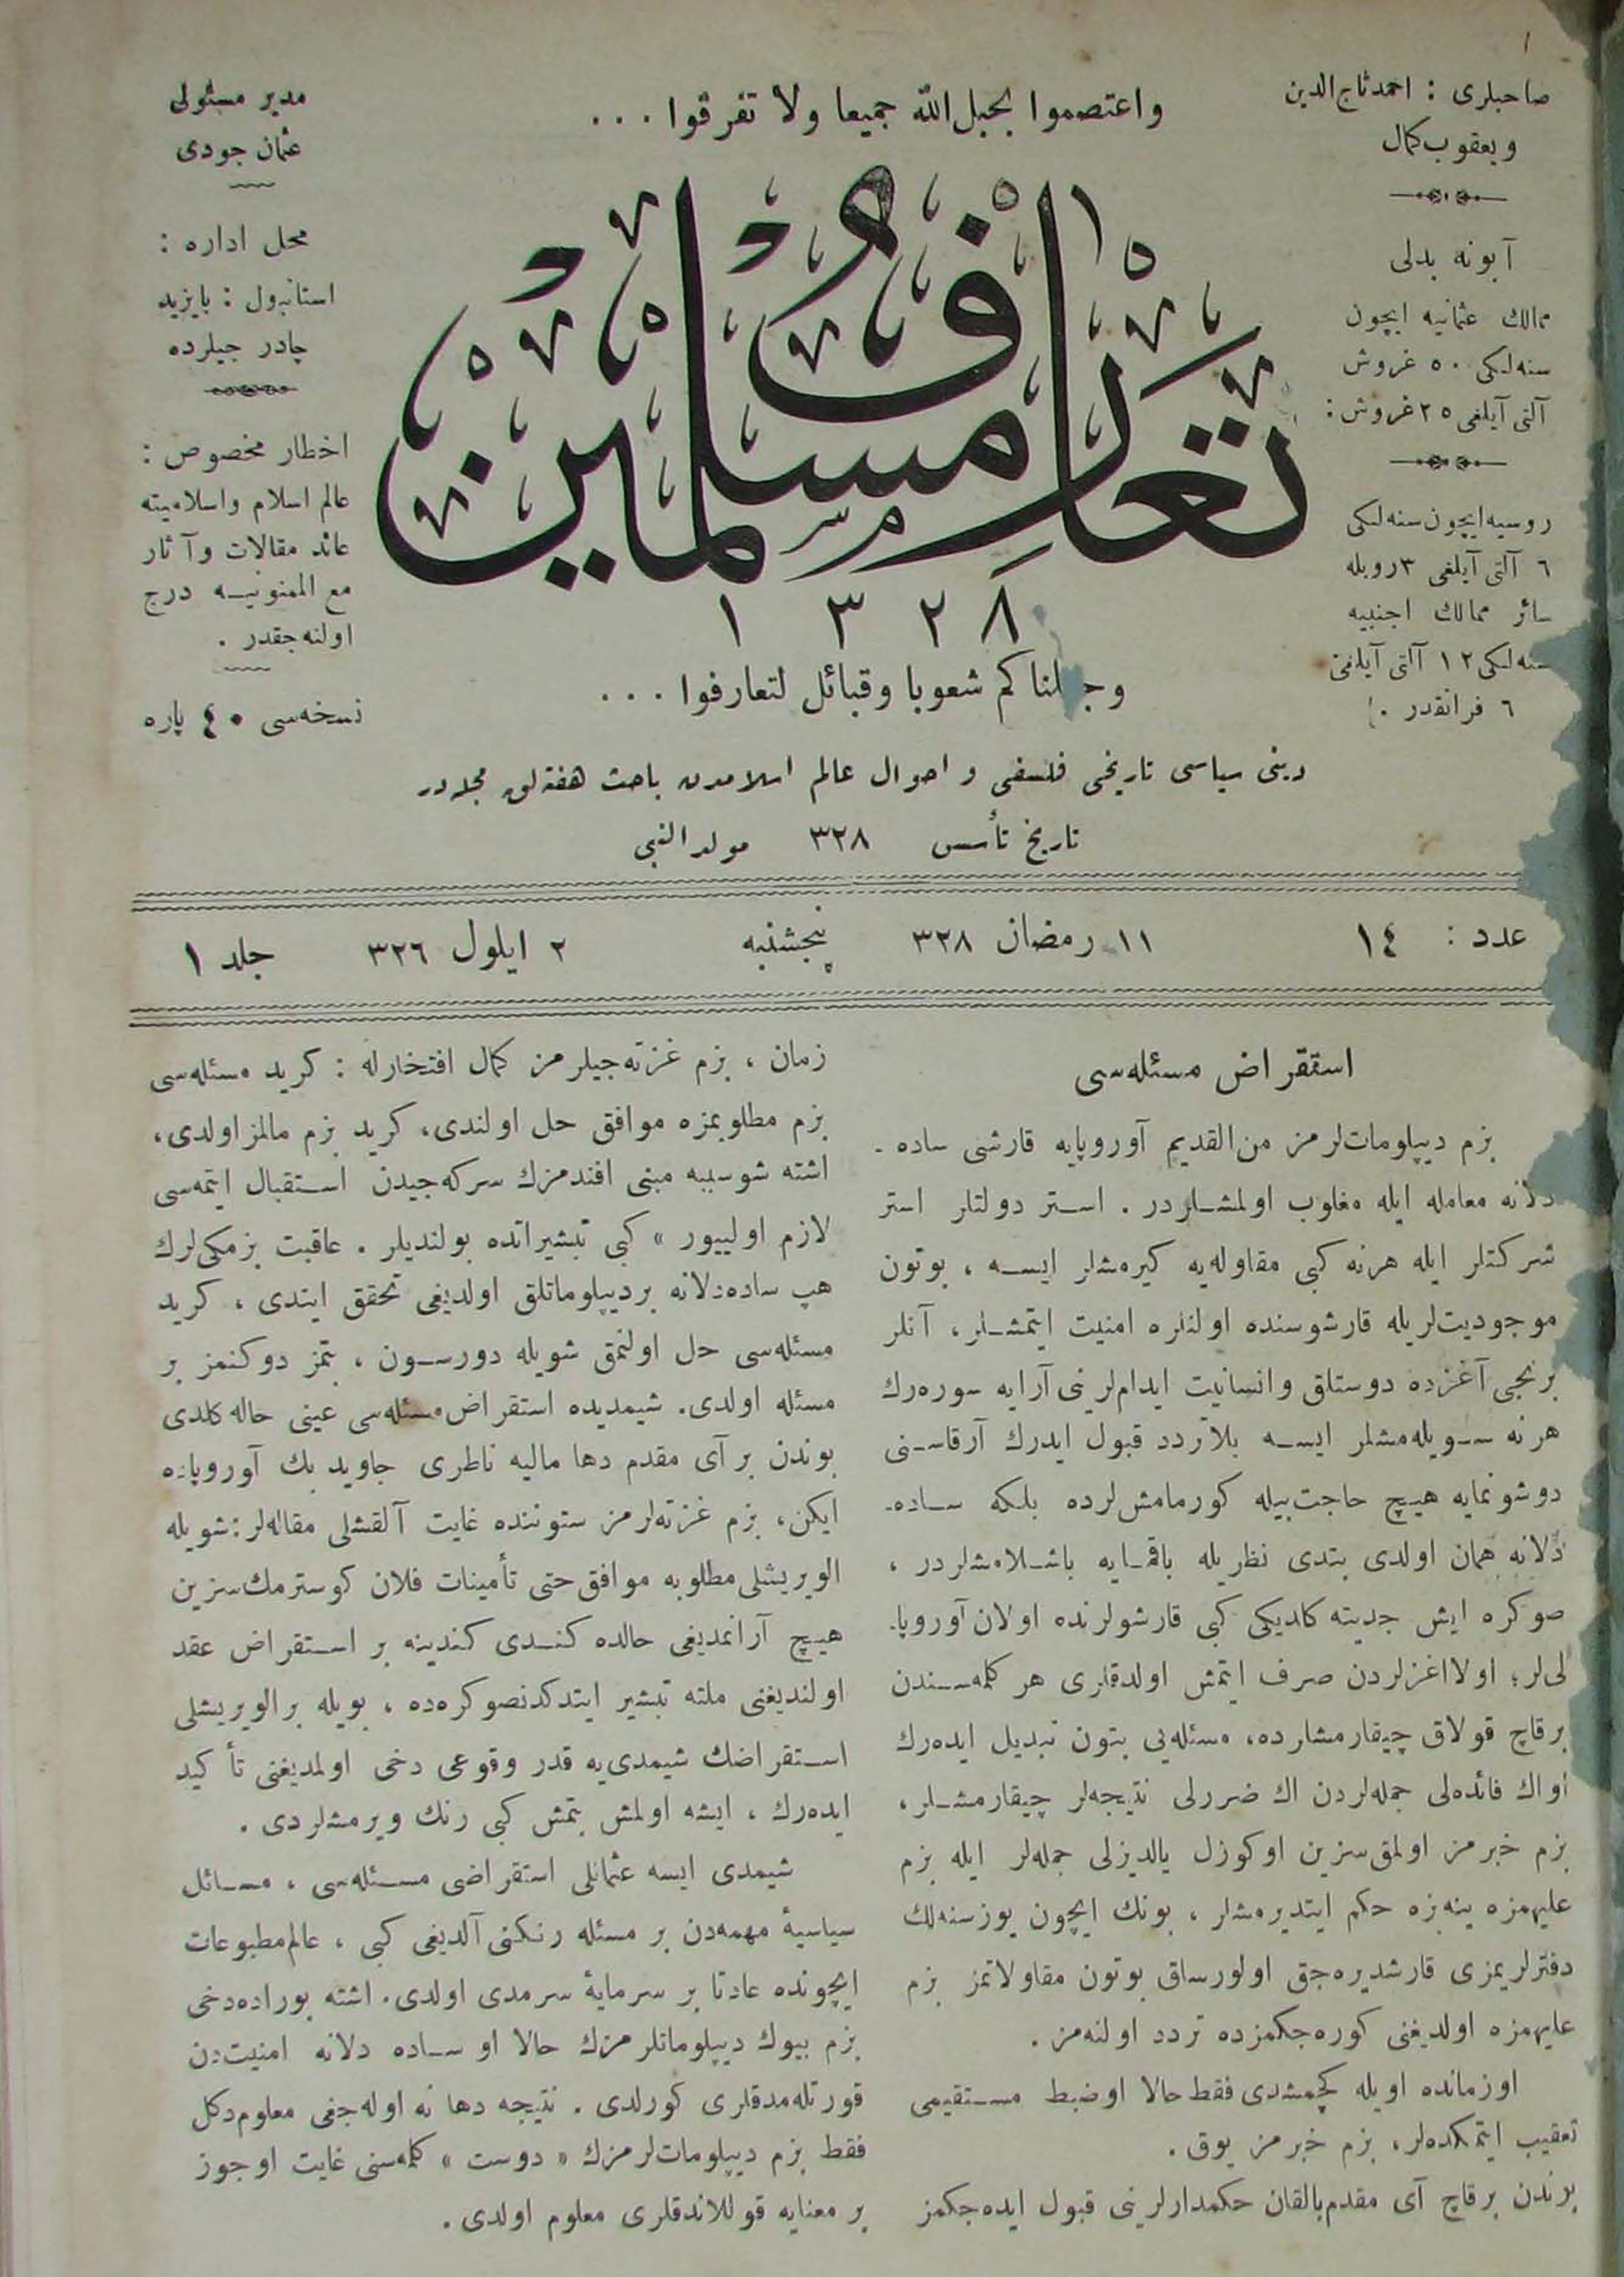 صاحبلری : احمد تاج الدین
و یعقوب کمال
آبونه بدلی
ممالك عثمانیه ایچون
سنه‌لكی ٥٠ غروش
آلتی آیلغی ٢٥ غروش :
روسیه ایچون سنه‌لكی
٦ آلتی آیلغی ٣ روبله
سائر ممالك اجنبیه
سنه‌لكی ١٢ آلتی آیلغی
٦ فرانقدر .
واعتصموا بحبل الله جمیعا ولا تفرقوا . . .
تعارف مسلمین
١٣٢٨
وجعلناكم شعوبا وقبائل لتعارفوا . . .
مدیر مسئولی
عثمان جودی
محل اداره :
استانبول : بایزید
چادرجیلرده
اخطار مخصوص :
عالم اسلام واسلامیته
عائد مقالات وآثار
مع الممنونیـه درج
اولنه‌جقدر .
نسخه‌سی ٤٠ پاره
دینی سیاسی تاریخی فلسفی و احوال عالم اسلامدن باحث هفته‌لق مجله‌در
تاریخ تأسس ٣٢٨ مولد النبی
عدد : ١٤ ١١ رمضان ٣٢٨ پنجشنبه ٢ ایلول ٣٢٦ جلد ١
استقراض مسئله‌سی
بزم دیپلومات‌لرمز من‌القدیم آوروپایه قارشی ساده -
دلانه معامله ایله مغلوب اولمشـلردر . اسـتر دولتلر استر
شركتلر ایله هرنه كبی مقاوله‌یه كیرمشلر ایسـه ، بوتون
موجودیت‌لریله قارشوسنده اولنلره امنیت ایتمشـلر، آنلر
برنجی آغزده دوستلق وانسانیت ایدام‌لرنی آرایه سوره‌رك
هرنه سـویله‌مشلر ایسـه بلاتردد قبول ایدرك آرقاسـنی
دوشونمایه هیـچ حاجت‌بیله كورمامش‌لرده بلكه سـاده-
دلانه همان اولدی بتدی نظریله باقمـایه باشـلامشلردر ،
صوكره ایش جدیته كلدیكی كبی قارشولرنده اولان آوروپا-
لی‌لر؛ اولا اغزلردن صرف ایتمش اولدقلری هر كلمه‌سـندن
برقاچ قولاق چیقارمشلرده، مسئله‌یی بتون تبدیل ایده‌رك
اواك فائده‌لی جمله‌لردن اك ضررلی نتیجه‌لر چیقارمشـلر،
بزم خبرمز اولمق‌سزین اوكوزل یالدیزلی جمله‌لر ایله بزم
علیهمزه ینه‌بزه حكم ایتدیرمشلر ، بونك ایچون یوزسنه‌لك
دفترلریمزی قارشدیره‌جق اولورساق بوتون مقاولاتمز بزم
علیهمزه اولدیغنی كوره‌جكمزده تردد اولنه‌مز .
اوزمانده اویله كچمشدی فقط حالا اوضبط مسـتقیمی
تعقیب ایتمكده‌لر، بزم خبرمز یوق .
بوندن برقاچ آی مقدم بالقان حكمدارلرنی قبول ایده‌جكمز
زمان ، بزم غزته‌جیلرمز كمال افتخارله : كرید مسئله‌سی
بزم مطلوبمزه موافق حل اولندی، كرید بزم مالمز اولدی،
اشته شوسببه مبنی افندمزك سركه‌جیدن اسـتقبال ایتمه‌سی
لازم اولییور » كبی تبشیراتده بولندیلر . عاقبت بزمكی‌لرك
هپ ساده‌دلانه بردیپلوماتلق اولدیغی تحقق ایتدی ، كرید
مسئله‌سی حل اولنمق شویله دورسـون ، بتمز دوكنمز بر
مسئله اولدی. شیمدیده استقراض مسئله‌سی عینی حاله كلدی
بوندن بر آی مقدم دها مالیه ناظری جاوید بك آوروپاده
ایكن، بزم غزته‌لرمز ستوننده غایت آلقشلی مقاله‌لر: شویله
الویریشلی مطلوبه موافق حتی تأمینات فلان كوسترمك‌سزین
هیـچ آرانمدیغی حالده كنـدی كندینه بر اسـتقراض عقد
اولندیغنی ملته تبشیر ایتدكدنصوكره‌ده ، بویله بر الویریشلی
اسـتقراضك شیمدی‌یه قدر وقوعی دخی اولمدیغنی تأكید
ایده‌رك ، ایشه اولمش بتمش كبی رنك ویرمشلردی .
شیمدی ایسه عثمانلی استقراضی مسـئله‌سی ، مسـائل
سیاسیۀ مهمه‌دن بر مسئله رنكنی آلدیغی كبی ، عالم‌مطبوعات
ایچونده عادتا بر سرمایۀ سرمدی اولدی. اشته بوراده‌دخی
بزم بیوك دیپلوماتلرمزك حالا او سـاده دلانه امنیت‌دن
قورتله‌مدقلری كورلدی . نتیجه دها نه اوله‌جغی معلوم‌دكل
فقط بزم دیپلومات‌لرمزك « دوست » كلمه‌سنی غایت اوجوز
بر معنایه قوللاندقلری معلوم اولدی .